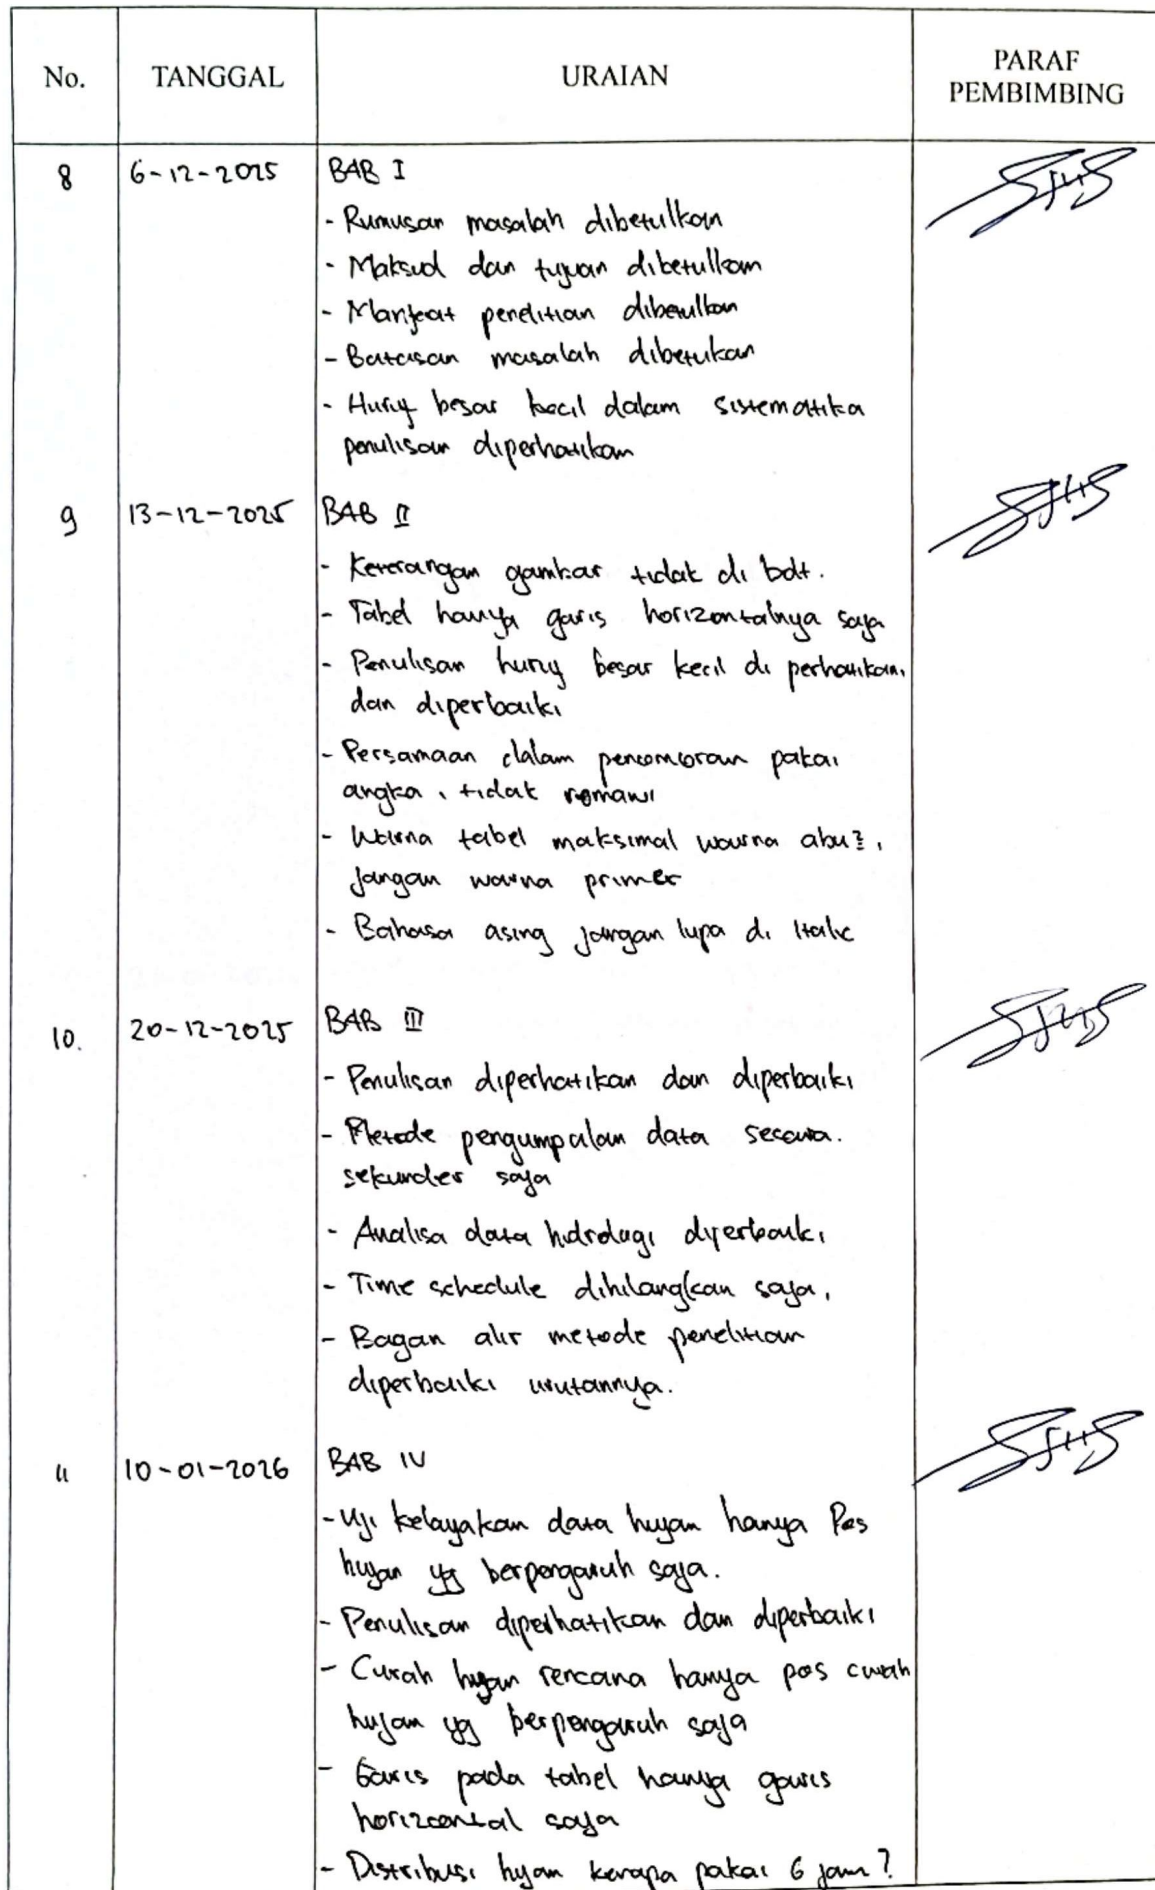 No. TANGGAL URAIAN PARAF PEMBIMBING
8 6-12-2025 BAB I
- Rumusan masalah dibetulkan
- Maksud dan tujuan dibetulkan
- Manfaat penelitian dibetulkan
- Batasan masalah dibetukan
- Huruf besar kecil dalam sistematika
penulisan diperhatikan
9 13-12-2025 BAB II
- Keterangan gambar tidak di bolt.
- Tabel hanya garis horizontalnya saja
- Penulisan huruf besar kecil di perhatikan,
dan diperbaiki
- Persamaan dalam penomoran pakai
angka, tidak romawi
- Warna tabel maksimal warna abu2,
jangan warna primer
- Bahasa asing jangan lupa di Italic
10. 20-12-2025 BAB III
- Penulisan diperhatikan dan diperbaiki
- Metode pengumpulan data secara.
sekunder saja
- Analisa data hidrologi diperbaiki
- Time schedule dihilangkan saja,
- Bagan alir metode penelitian
diperbaiki urutannya.
11 10-01-2026 BAB IV
- Uji kelayakan data hujan hanya Pos
hujan yg berpengaruh saja.
- Penulisan diperhatikan dan diperbaiki
- Curah hujan rencana hanya pos curah
hujan yg berpengaruh saja
- Garis pada tabel hanya garis
horizontal saja
- Distribusi hujan kenapa pakai 6 jam?